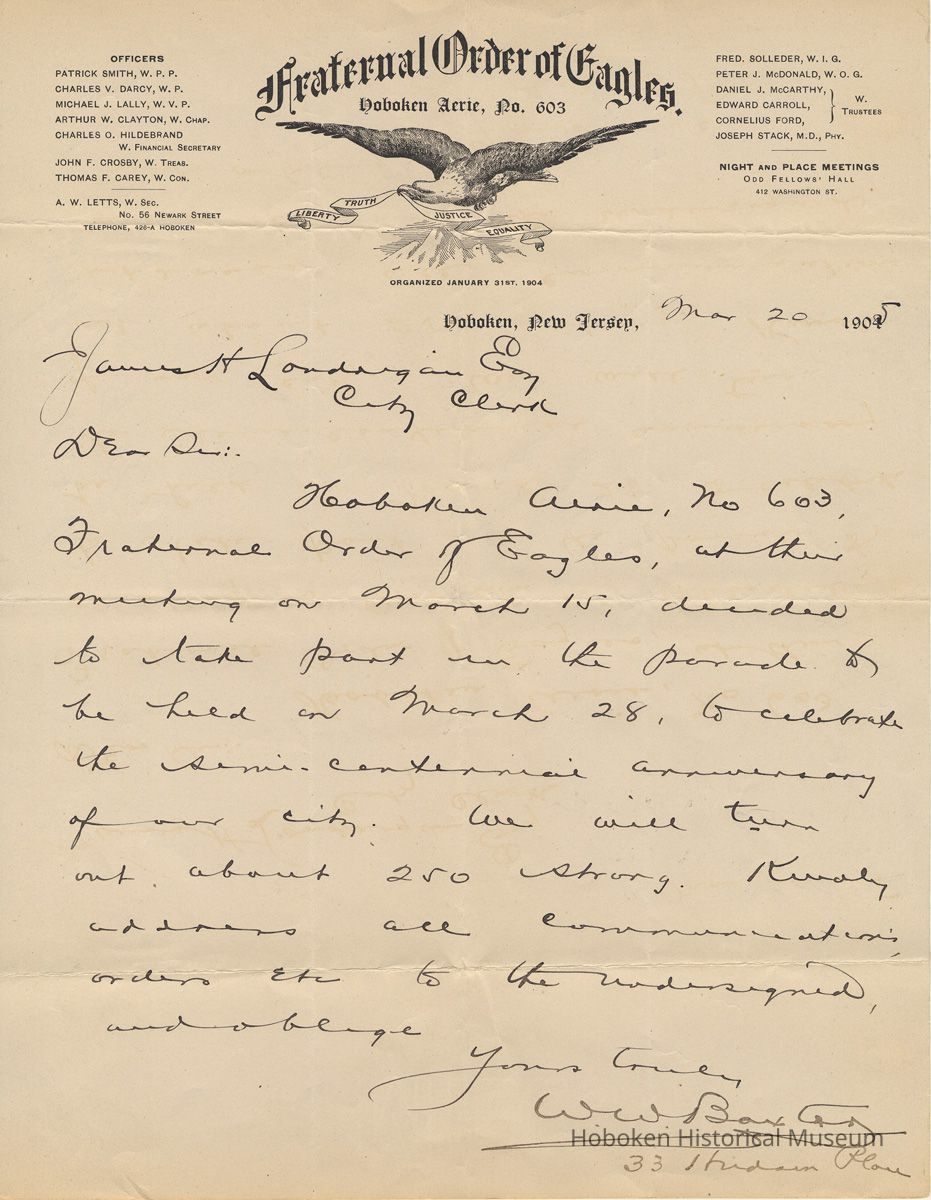 OFFICERS
PATRICK SMITH, W. P. P.
CHARLES V. DARCY, W. P.
MICHAEL J. LALLY, W. V. P.
ARTHUR W. CLAYTON, W. CHAP.
CHARLES O. HILDEBRAND
W. FINANCIAL SECRETARY
JOHN F. CROSBY, W. TREAS.
THOMAS F. CAREY, W. CON.
A. W. LETTS, W. SEC.
No. 56 NEWARK STREET
TELEPHONE, 426-A HOBOKEN
Fraternal Order of Eagles.
Hoboken Aerie, No. 603
LIBERTY TRUTH JUSTICE EQUALITY
ORGANIZED JANUARY 31ST. 1904
FRED. SOLLEDER, W. I. G.
PETER J. McDONALD, W. O. G.
DANIEL J. McCARTHY,
EDWARD CARROLL,
CORNELIUS FORD,
W. TRUSTEES
JOSEPH STACK, M.D., PHY.
NIGHT AND PLACE MEETINGS
ODD FELLOWS' HALL
412 WASHINGTON ST.
Hoboken, New Jersey, Mar 20 1905
James H Londrigan Esq
City Clerk
Dear Sir:.
Hoboken Aerie, No 603,
Fraternal Order of Eagles, at their
meeting on March 15, decided
to take part in the parade to
be held on March 28, to celebrate
the semi-centennial anniversary
of our city. We will turn
out about 250 strong. Kindly
address all communications,
orders etc to the undersigned,
and oblige
Yours truly
W W Baxter
33 Hudson Place
Hoboken Historical Museum